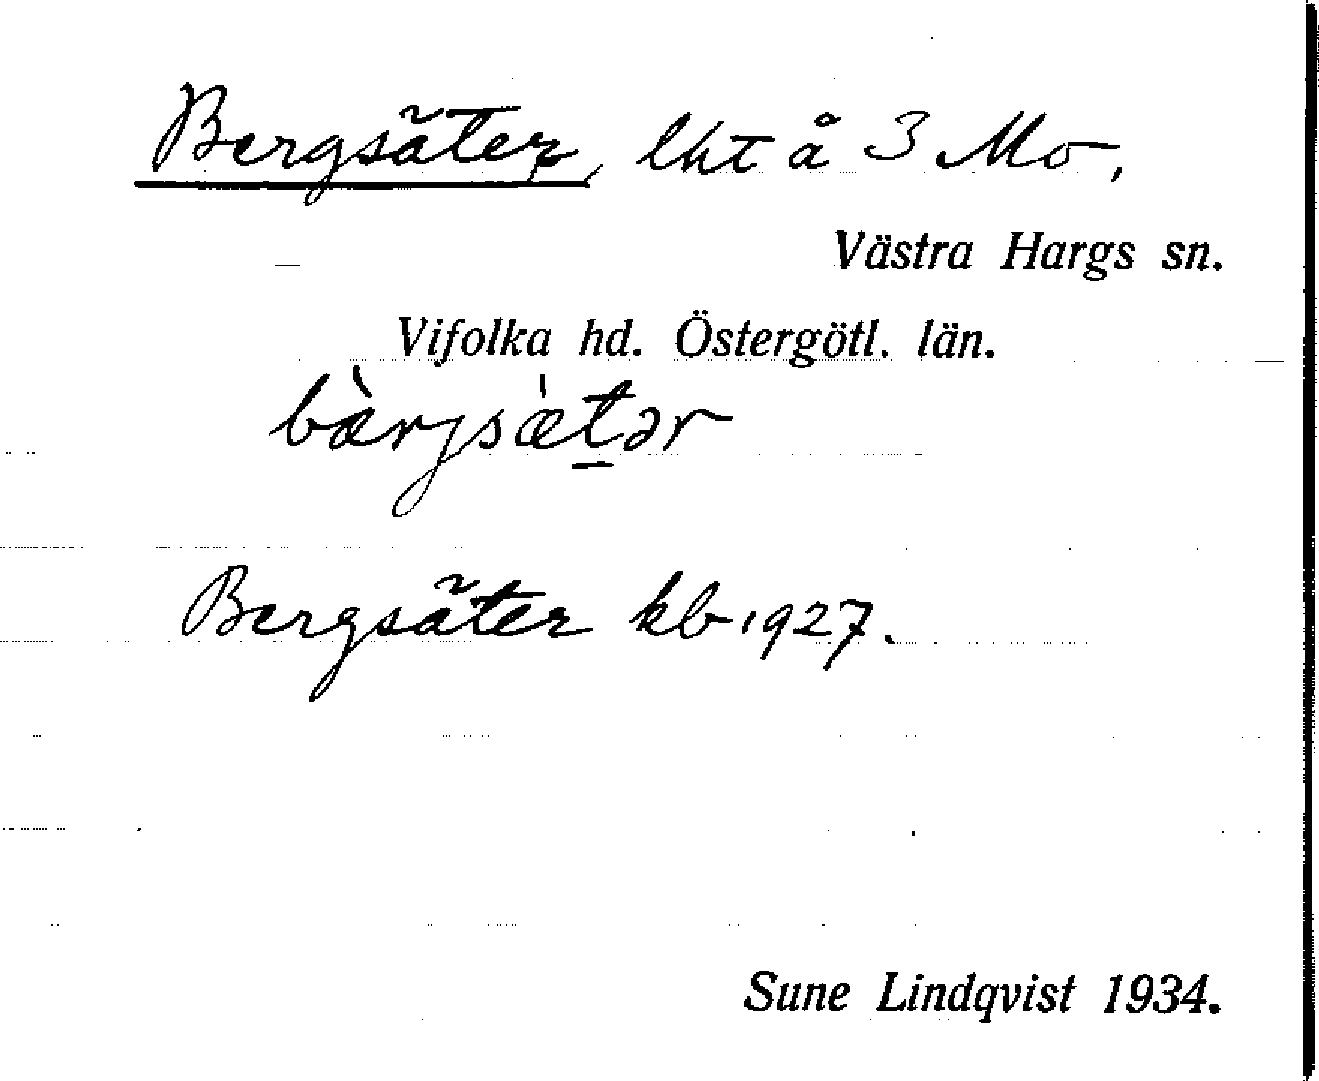 Bergsäter, lht å 3 Mo,
Västra Hargs sn.
Vifolka hd. Östergötl. län.
bæ̀rjsæ̍t̠ər
Bergsäter kb 1927.
Sune Lindqvist 1934.